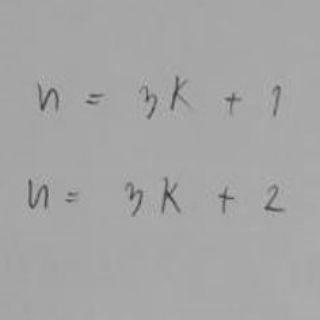 n = 3k + 1
n = 3k + 2